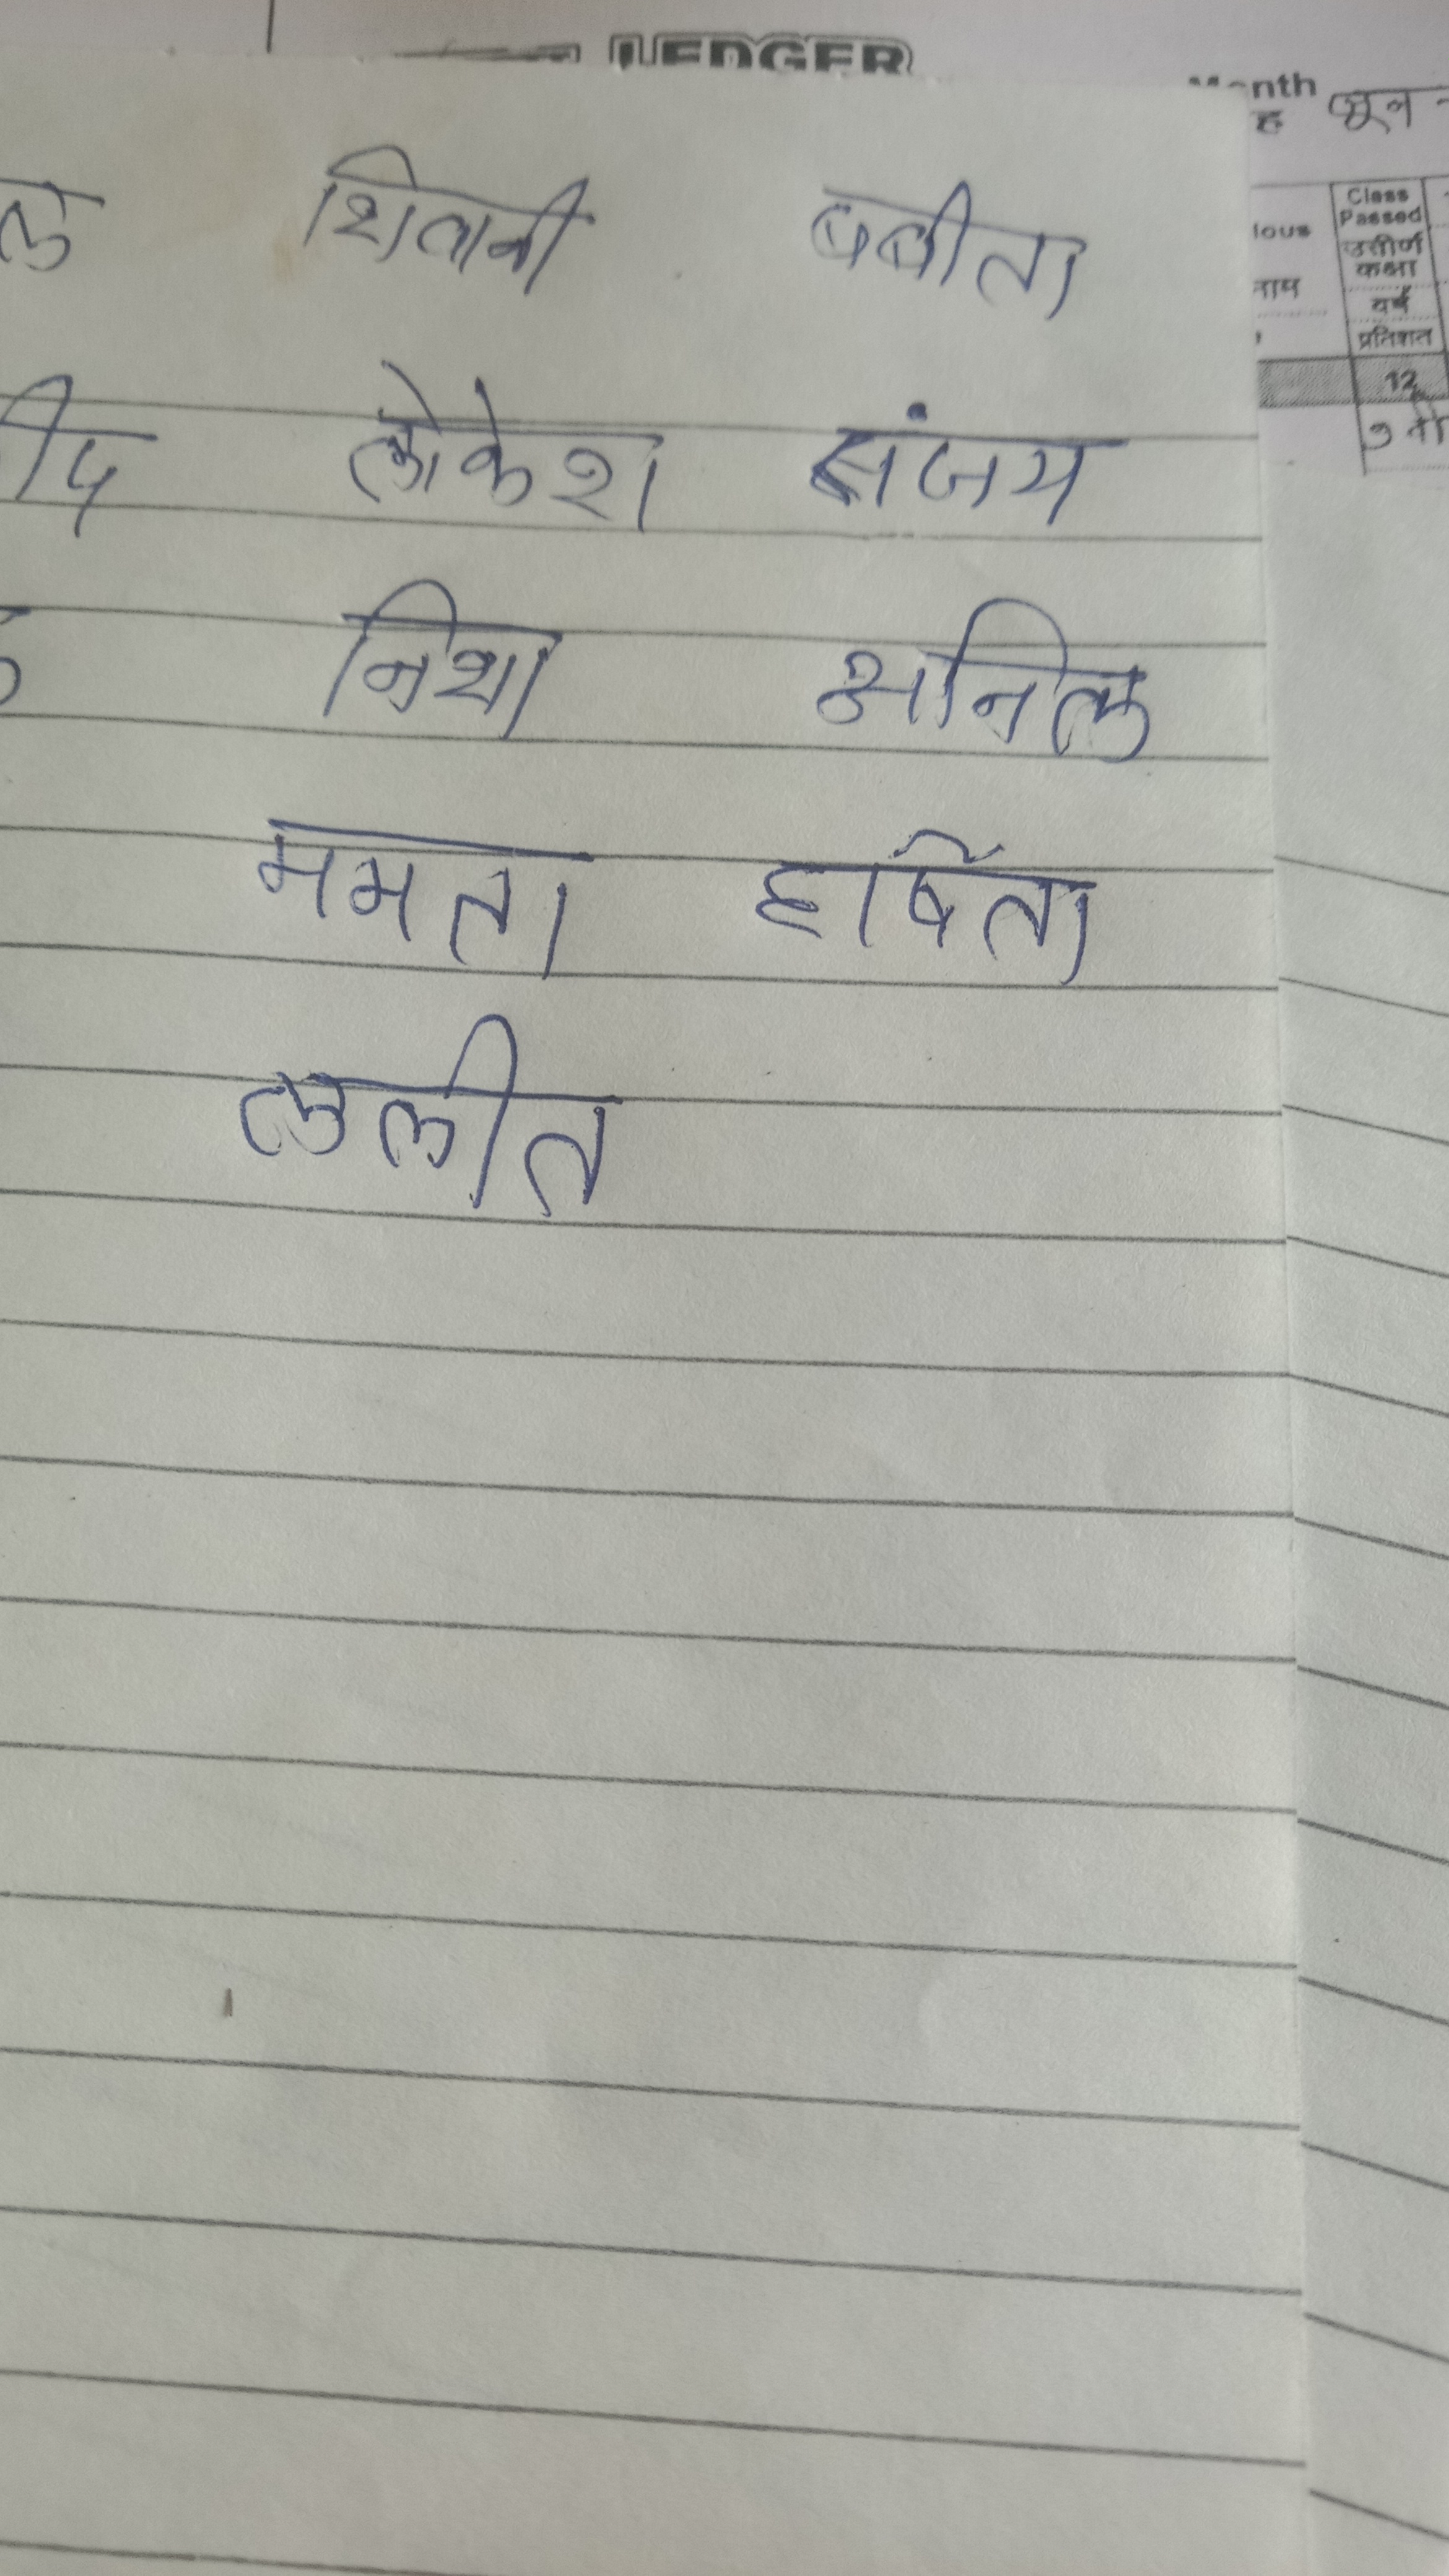 LEDGER
Month जून
Class Passed
उत्तीर्ण कक्षा
वर्ष
प्रतिशत
12
शिवानी बबीता
लोकेश संजय
निशा अनिल
ममता हर्षिता
ललीत